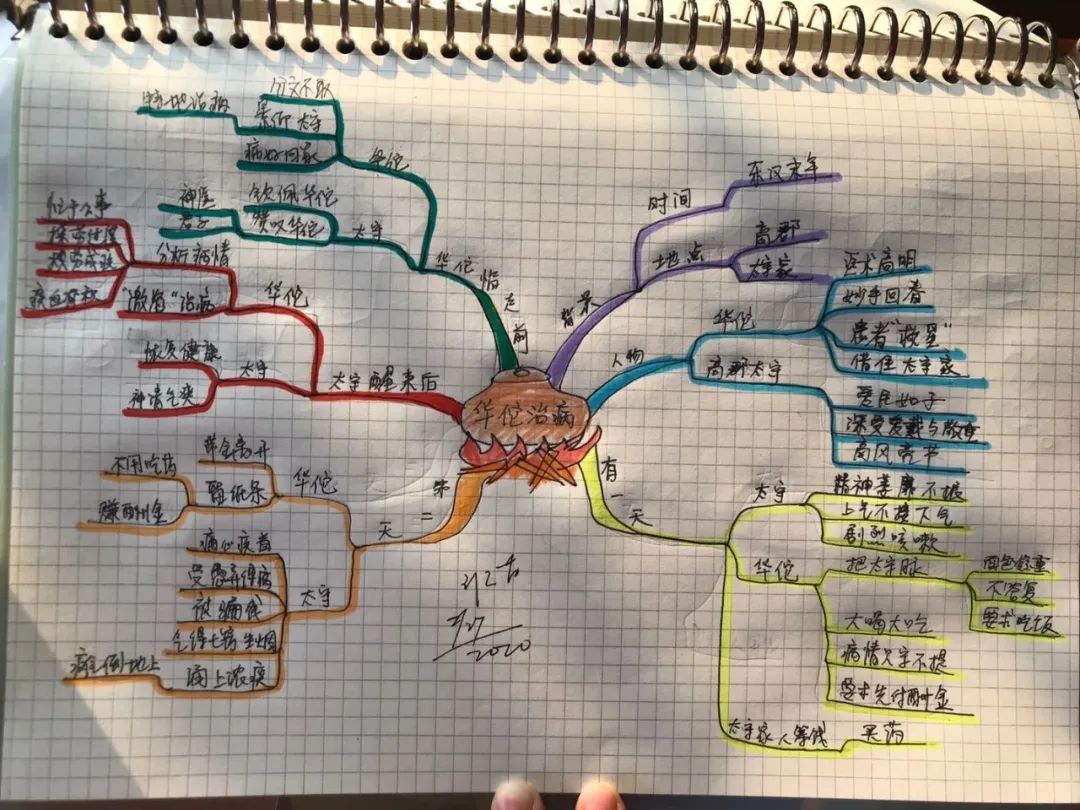 华佗治病
背景
时间
东汉末年
地点
高郡
太守家
人物
华佗
医术高明
妙手回春
患者"救星"
借住太守家
高郡太守
爱民如子
深受爱戴与敬重
高风亮节
有一天
太守
精神萎靡不振
上气不接下气
剧烈咳嗽
华佗
把太守脉
面色凝重
不答复
要求吃饭
大喝大吃
病情只字不提
要求先付酬金
太守家人筹钱
买药
第二天
华佗
带金离开
留纸条
不用吃药
赚酬金
太守
痛心疾首
被骗钱
气得七窍生烟
涌上浓痰
病倒地上
太守醒来后
华佗
分析病情
"激怒"治病
太守
恢复健康
神清气爽
华佗临走前
华佗
分文不取
景仰太守
特地治病
病好回家
太守
钦佩华佗
赞叹华佗
神医
君子
2020